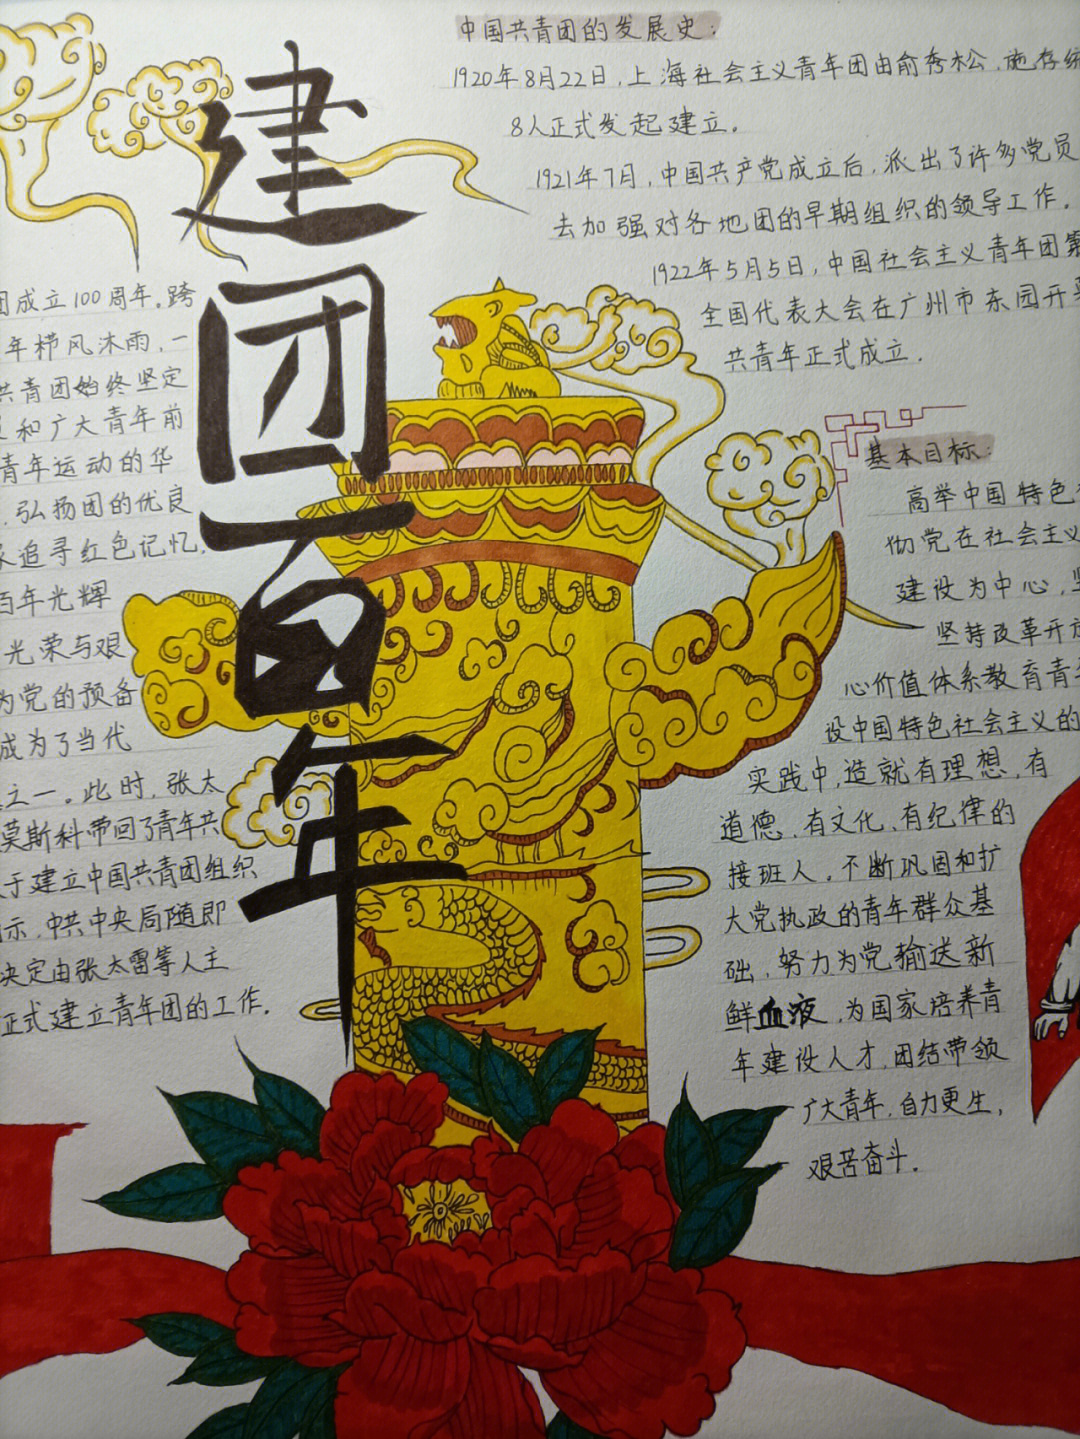 建团百年
中国共青团的发展史:
1920年8月22日,上海社会主义青年团由俞秀松、施存统
8人正式发起建立。
1921年7月,中国共产党成立后,派出了许多党员
去加强对各地团的早期组织的领导工作。
1922年5月5日,中国社会主义青年团第
全国代表大会在广州市东园开
共青年正式成立.
团成立100周年。跨
年栉风沐雨,一
共青团始终坚定
和广大青年前
青年运动的华
,弘扬团的优良
追寻红色记忆.
百年光辉
光荣与艰
为党的预备
成为了当代
之一。此时,张太
莫斯科带回了青年共
于建立中国共青团组织
示,中共中央局随即
决定由张太雷等人主
正式建立青年团的工作.
基本目标:
高举中国特色
彻党在社会主义
建设为中心,
坚持改革开放
心价值体系教育青
设中国特色社会主义的
实践中,造就有理想、有
道德、有文化、有纪律的
接班人。不断巩固和扩
大党执政的青年群众基
础,努力为党输送新
鲜血液,为国家培养青
年建设人才,团结带领
广大青年,自力更生,
艰苦奋斗.